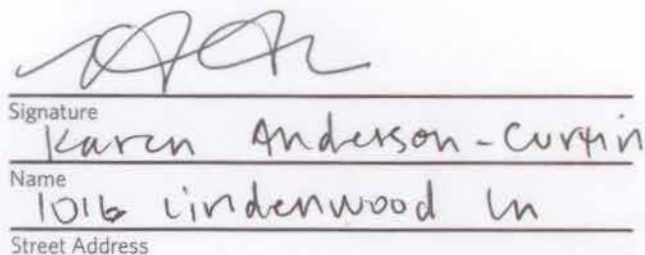 Signature
Karen Anderson-Curtin
Name
1016 Lindenwood Ln
Street Address